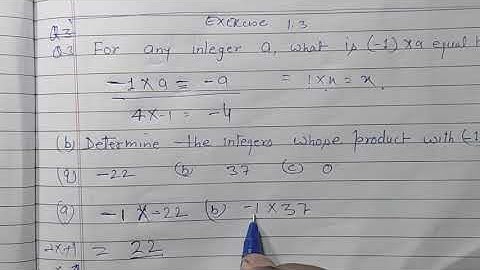 Exercise 1.3
Q3 For any integer a, what is (-1) x a equal t
-1 x a = -a = 1 x x = x.
4 x -1 = -4
(b) Determine the integers whose product with (-1
(a) -22 (b) 37 (c) 0
(a) -1 x -22 (b) -1 x 37
= 22